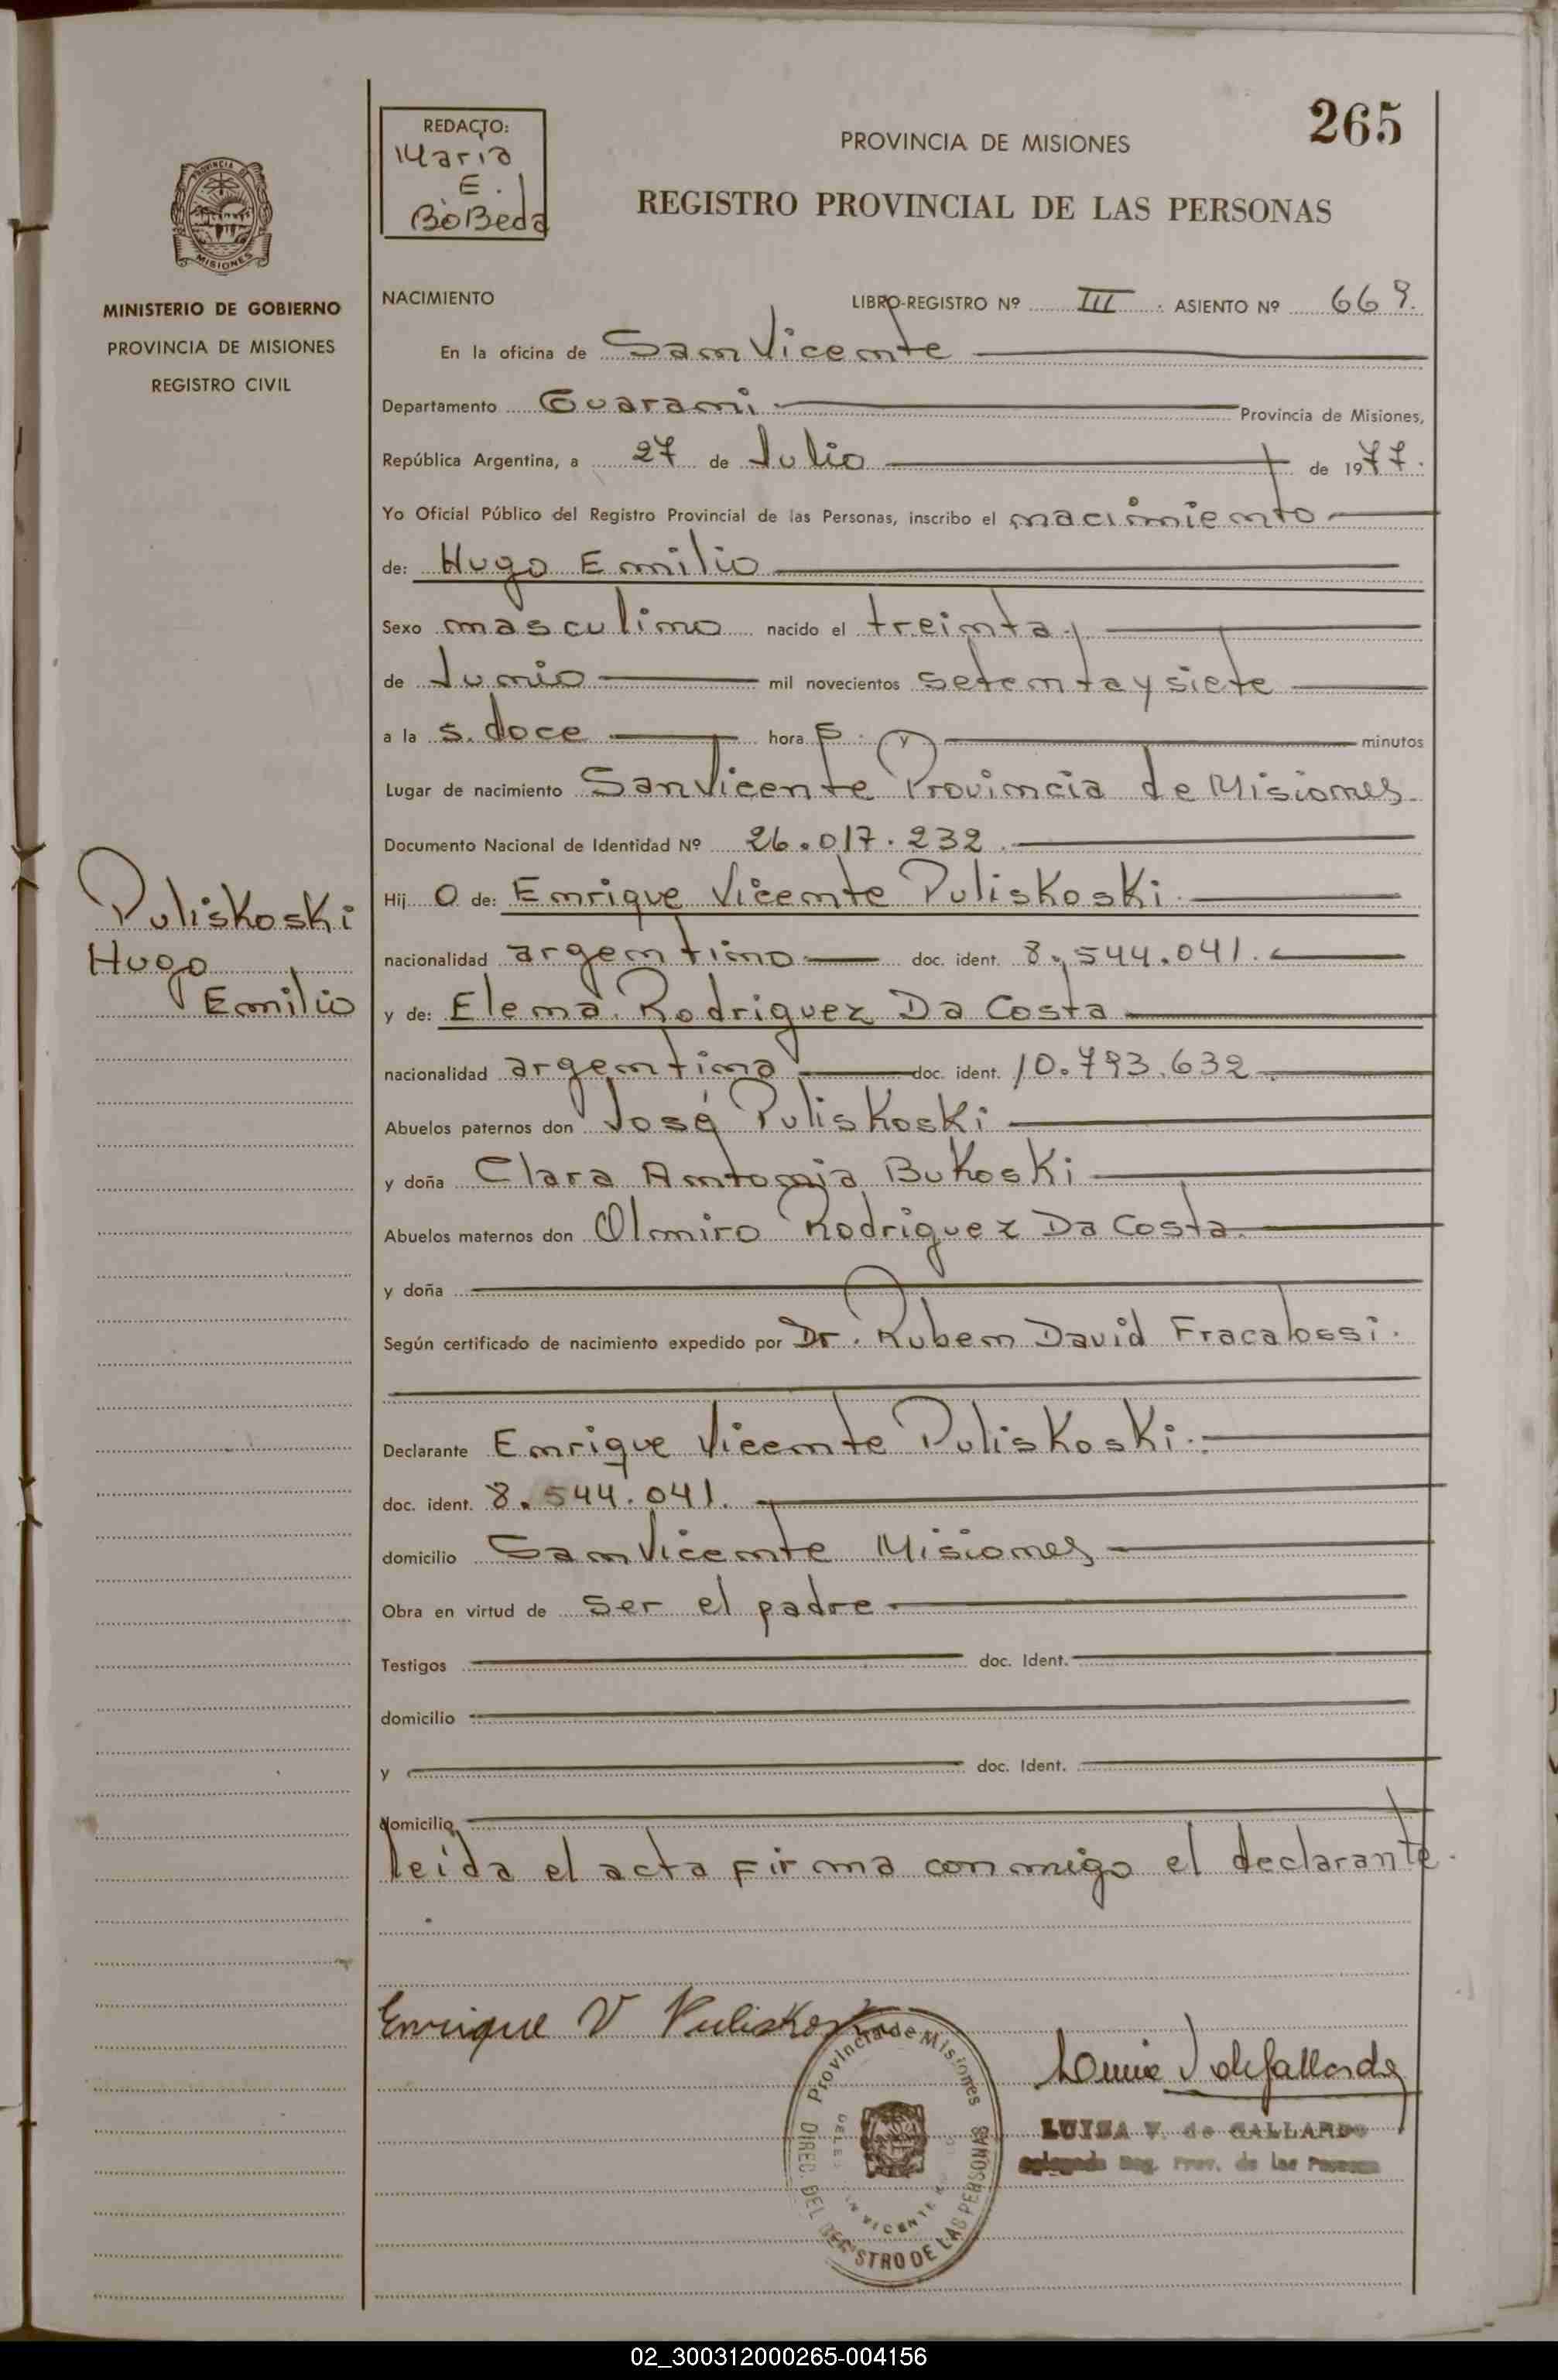 265
REDACTO:
Maria
E.
BoBeda
PROVINCIA DE MISIONES
REGISTRO PROVINCIAL DE LAS PERSONAS
PROVINCIA
MISIONES
MINISTERIO DE GOBIERNO
PROVINCIA DE MISIONES
REGISTRO CIVIL
NACIMIENTO LIBRO-REGISTRO Nº III. ASIENTO Nº 669.
En la oficina de San Vicente
Departamento Guarani Provincia de Misiones,
República Argentina, a 27 de Julio de 1977.
Yo Oficial Público del Registro Provincial de las Personas, inscribo el nacimiento
de: Hugo Emilio
Sexo masculino nacido el treinta
de Junio mil novecientos setenta y siete
a la s. doce hora s. y minutos
Lugar de nacimiento San Vicente Provincia de Misiones
Documento Nacional de Identidad Nº 26.017.232.
Hij o de: Enrique Vicente Puliskoski
nacionalidad argentino doc. ident. 8.544.041.
y de: Elena Rodriguez Da Costa
nacionalidad argentina doc. ident. 10.793.632
Abuelos paternos don José Puliskoski
y doña Clara Antonia Bukoski
Abuelos maternos don Olmiro Rodriguez Da Costa.
y doña
Según certificado de nacimiento expedido por Dr. Ruben David Fracalossi.
Declarante Enrique Vicente Puliskoski.
doc. ident. 8.544.041.
domicilio San Vicente Misiones
Obra en virtud de ser el padre
Testigos doc. Ident.
domicilio
y doc. Ident.
domicilio
leida el acta firma conmigo el declarante.
Puliskoski
Hugo
Emilio
Enrique V Puliskoski
Provincia de Misiones
DIREC. DEL REGISTRO DE LAS PERSONAS
LUISA V. de GALLARDO
Reg. Prov. de las Personas
02_300312000265-004156